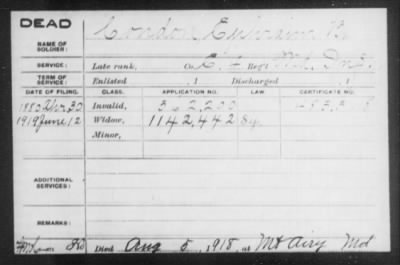 DEAD
NAME OF SOLDIER: Condon, Ephraim
SERVICE: Late rank, Co. Reg't Md. Inf.
TERM OF SERVICE: Enlisted , 1 Discharged , 1
DATE OF FILING. CLASS. APPLICATION NO. LAW. CERTIFICATE NO.
1880 Apr. 30 Invalid, 362,200
1919 June 12 Widow, 1142,442
Minor,
ADDITIONAL SERVICES:
REMARKS:
Died Aug 5, 1918, at Mt Airy Md